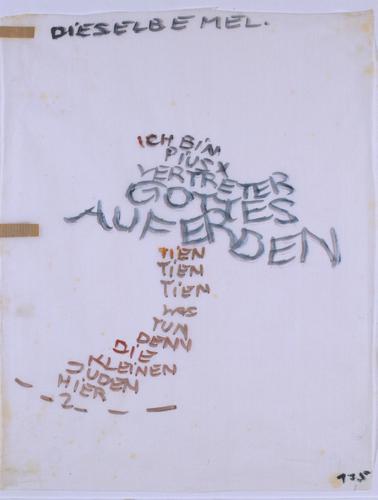 DIESELBE MEL.
ICH BIN
PIUS X
VERTRETER
GOTTES
AUF ERDEN
TIEN
TIEN
TIEN
WAS
TUN
DENN
DIE
KLEINEN
JUDEN
HIER
- 2 -